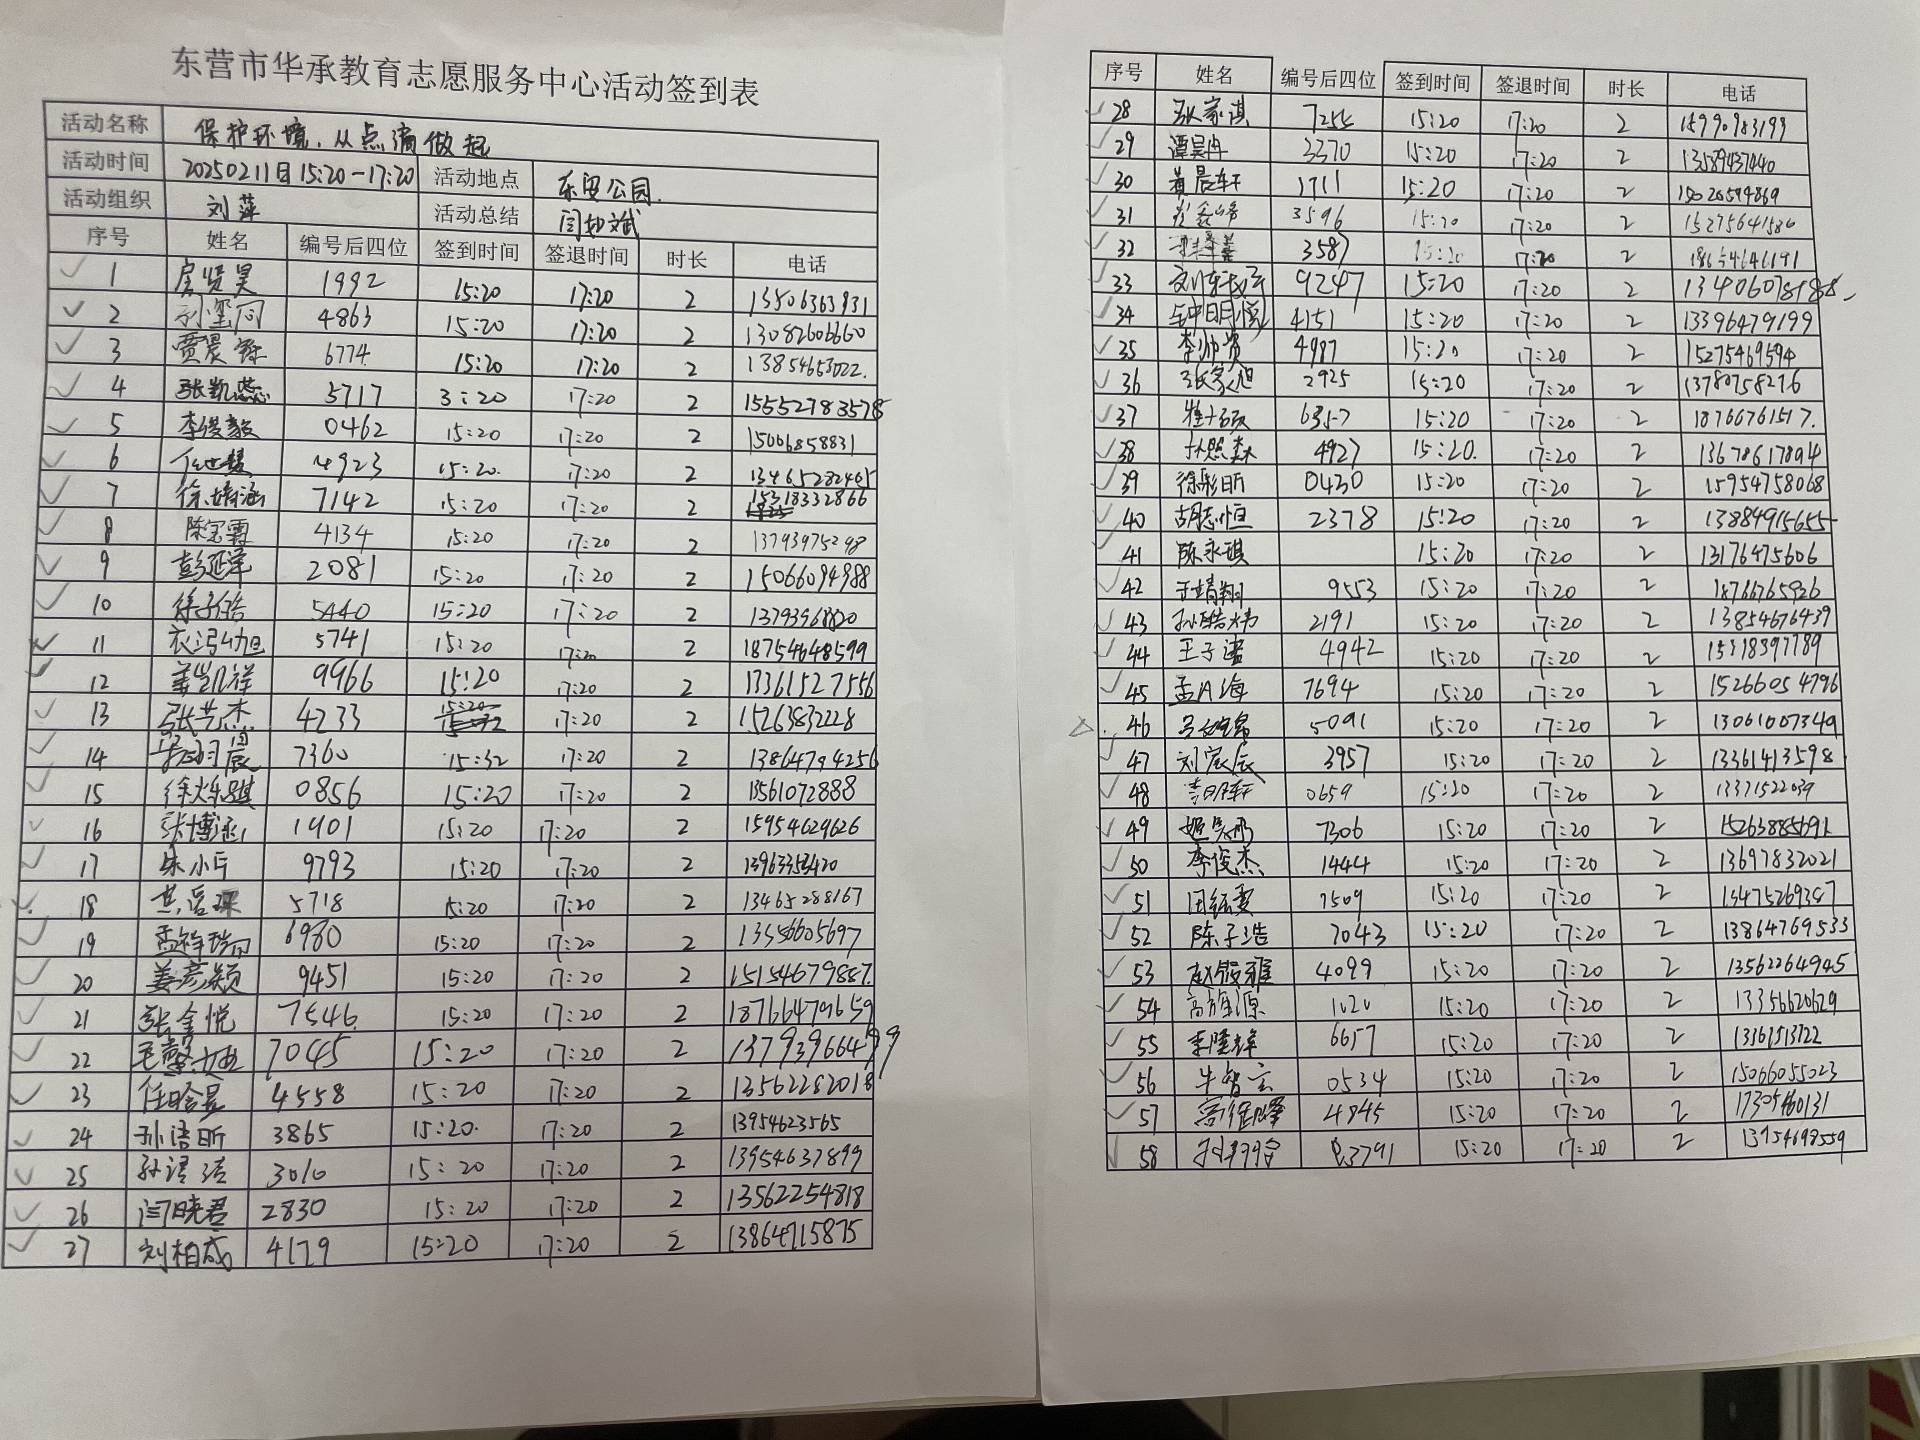 东营市华承教育志愿服务中心活动签到表
活动名称 保护环境，从点滴做起
活动时间 20250211日15:20-17:20 活动地点 东贸公园.
活动组织 刘萍 活动总结
序号 姓名 编号后四位 签到时间 签退时间 时长 电话
1 房贤昊 1992 15:20 17:20 2 13506363931
2 4863 15:20 17:20 2 13082606660
3 贾晨 6774 15:20 17:20 2 13854653022.
4 张凯蕊 5717 3:20 17:20 2 15552783578
5 李俊毅 0462 15:20 17:20 2 15066858831
6 4923 15:20. 17:20 2 13465282465
7 徐婧涵 7142 15:20 17:20 2 15318332866
8 陈冠霖 4134 15:20 17:20 2 13793975298
9 彭延泽 2081 15:20 17:20 2 15066094988
10 徐子倍 5440 15:20 17:20 2 13793968820
11 5741 15:20 17:20 2 18754648599
12 姜凯祥 9966 15:20 17:20 2 13361527556
13 张艺杰 4233 15:20 17:20 2 15263832228
14 7360 15:32 17:20 2 13864794256
15 0856 15:20 17:20 2 13561072888
16 张博涵 1901 15:20 17:20 2 15954629626
17 朱小乓 9793 15:20 17:20 2
18 5718 15:20 17:20 2 13465288167
19 孟祥瑞 6980 15:20 17:20 2 13356605697
20 姜彦颖 9451 15:20 17:20 2 15154679887.
21 张金悦 7546 15:20 17:20 2 18766479659
22 毛馨 7045 15:20 17:20 2 13793966499
23 任晗昱 4558 15:20 17:20 2 13562282018
24 孙语昕 3865 15:20. 17:20 2 13954623565
25 3010 15:20 17:20 2 13954637899
26 闫晓君 2830 15:20 17:20 2 13562254818
27 刘柏成 4179 15:20 17:20 2 13864715875
序号 姓名 编号后四位 签到时间 签退时间 时长 电话
28 张家淇 7255 15:20 17:20 2 18990983199
29 谭昊冉 3370 15:20 17:20 2 13589437440
30 黄晨轩 1711 15:20 17:20 2 15020594869
31 3596 15:20 17:20 2 15275641580
32 3587 15:20 17:20 2 18654646191
33 9247 15:20 17:20 2
34 4151 15:20 17:20 2 13396479199
35 李帅 4987 15:20 17:20 2 15275469594
36 张家旭 2925 15:20 17:20 2 13780758276
37 15:20 17:20 2 18766761517.
38 4927 15:20. 17:20 2 13678617894
39 徐彰昕 0430 15:20 17:20 2 15954758068
40 胡志恒 2378 15:20 17:20 2 13884915655
41 陈永琪 15:20 17:20 2 13176475606
42 于靖翔 9553 15:20 17:20 2 18766765926
43 孙皓炜 2191 15:20 17:20 2 13854676439
44 王子 4942 15:20 17:20 2 15318397789
45 孟 7694 15:20 17:20 2 15266054796
46 5091 15:20 17:20 2 13061007349
47 刘宸辰 3957 15:20 17:20 2 13361413598
48 0659 15:20 17:20 2 13371522039
49 7306 15:20 17:20 2 15263885691
50 李俊杰 1444 15:20 17:20 2 13697832021
51 7509 15:20 17:20 2 13475269387
52 陈子浩 7043 15:20 17:20 2 13864769533
53 4099 15:20 17:20 2 13562264945
54 高 源 1020 15:20 17:20 2 13356620629
55 李隆 6657 15:20 17:20 2 13561513722
56 牛智 0534 15:20 17:20 2 15066055023
57 4845 15:20 17:20 2 17305460131
58 3791 15:20 17:20 2 13954698559